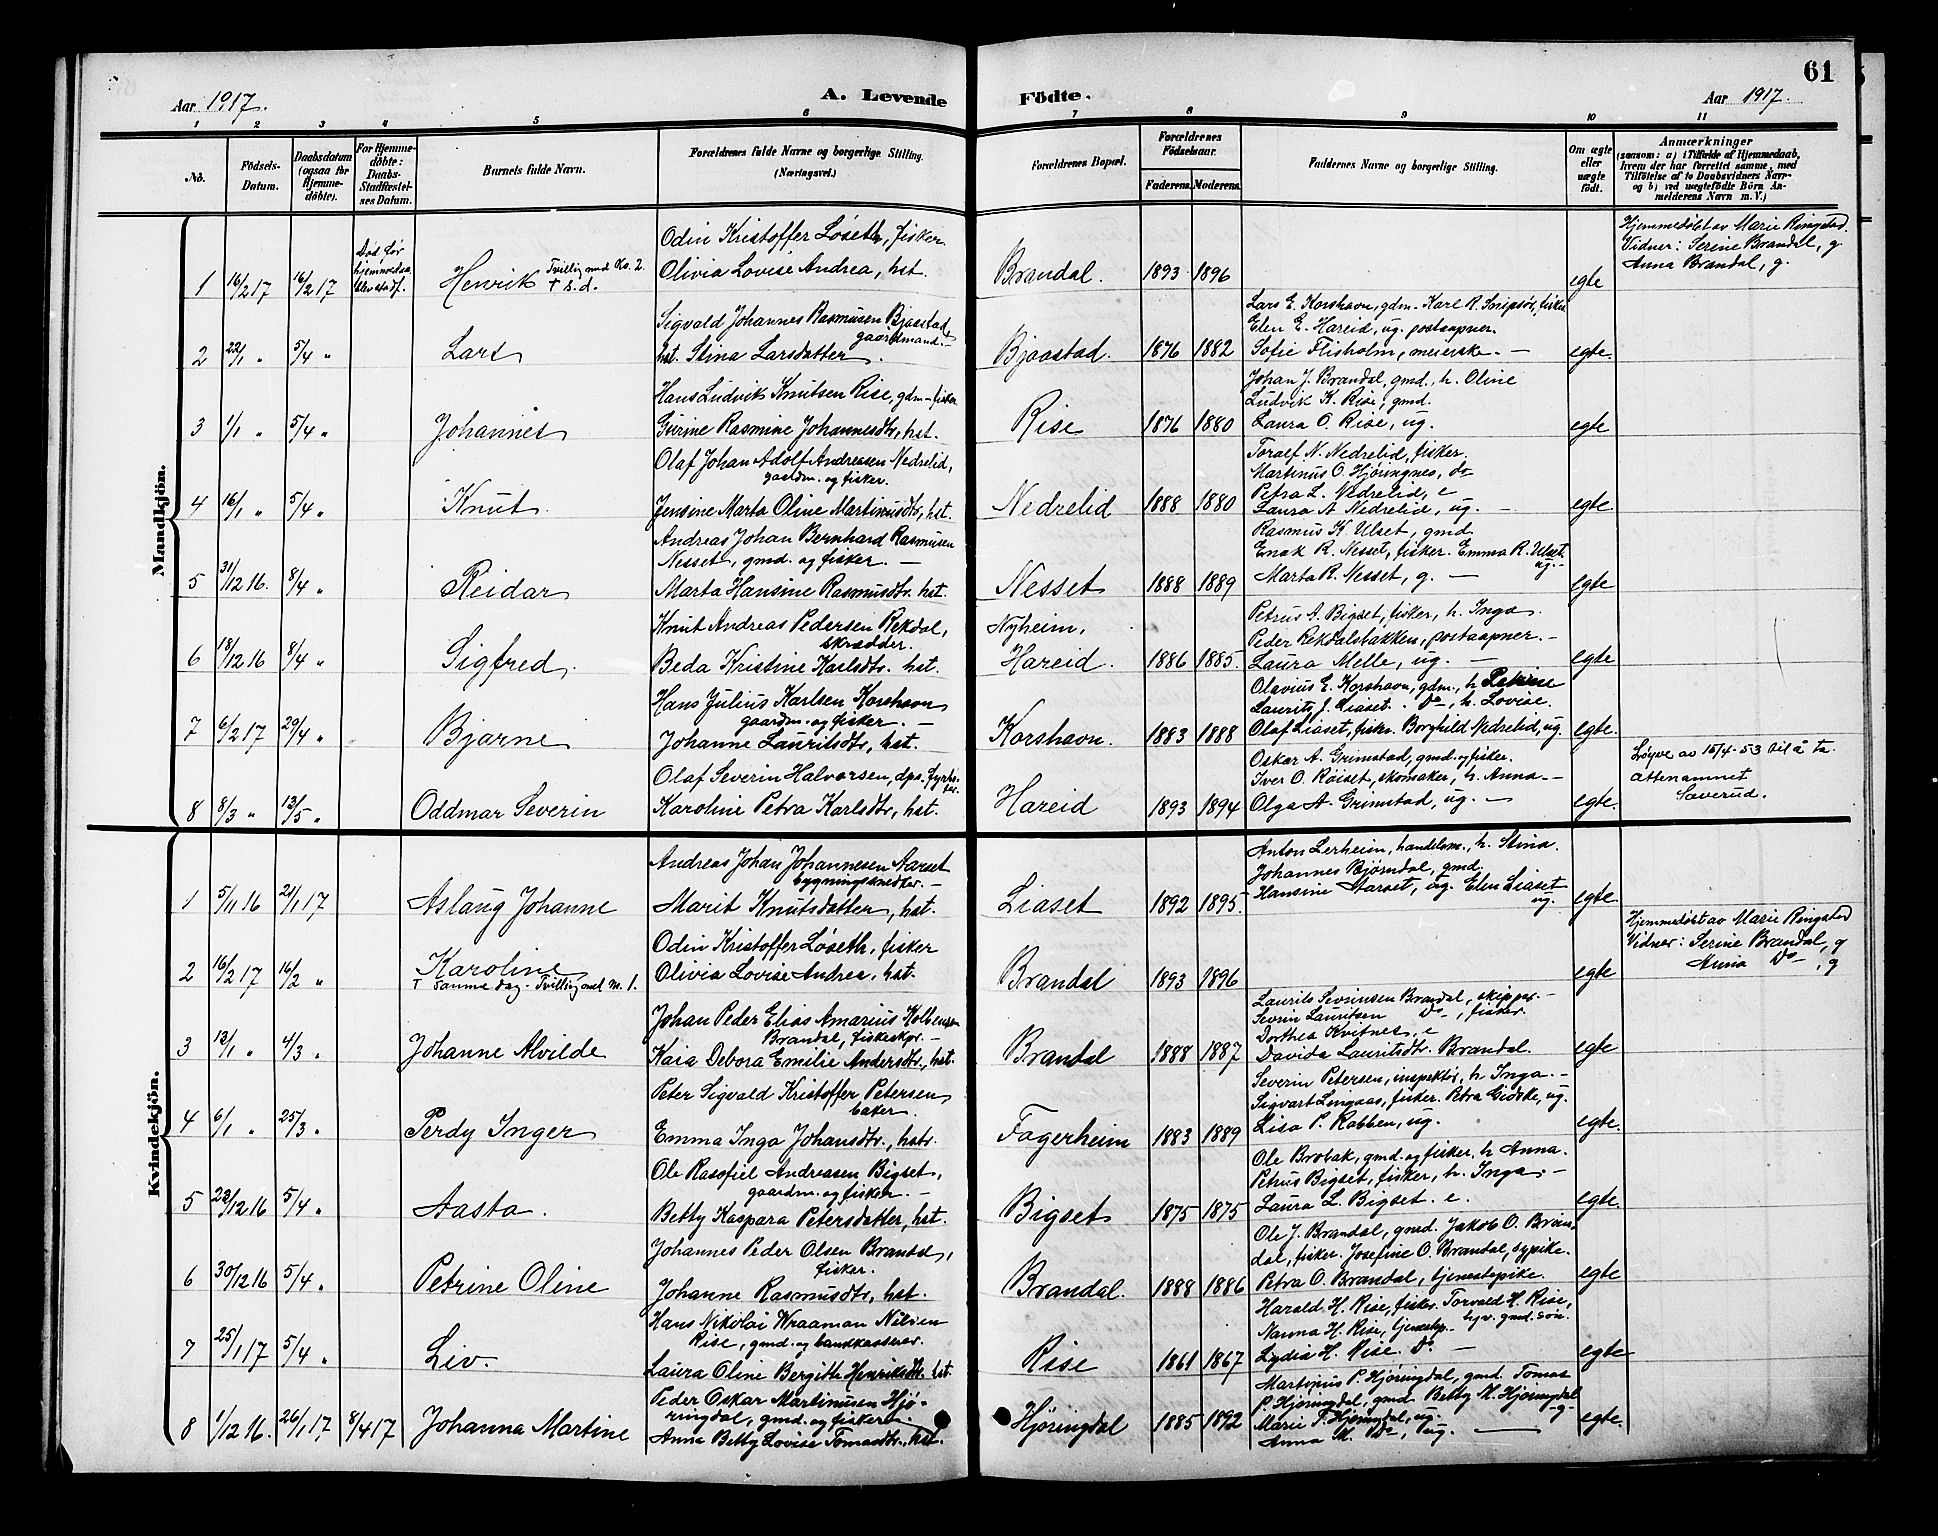 61
Aar 1917.
A. Levende Födte.
Aar 1917.
1 2 3 4 5 6 7 8 9 10 11
No.
Födsels-Datum.
Daabsdatum (ogsaa for Hjemme-döbte).
For Hjemme-döbte: Daabs-Stadfæstel-ses Datum.
Barnets fulde Navn.
Forældrenes fulde Navne og borgerlige Stilling. (Næringsvei.)
Forældrenes Bopæl.
Forældrenes Födselsaar.
Faderens. Moderens.
Faddernes Navne og borgerlige Stilling.
Om ægte eller uægte födt.
Anmærkninger
(saasom: a) i Tilfælde af Hjemmedaab, hvem der har forrettet samme, med Tilföielse af to Daabsvidners Navn- og b) ved uægtefödte Börn An-melderens Navn m. V.)
Mandkjön.
1 16/2 17 16/2 17 Død før hjemmedaa. blev stadf. Henrik Tvilling med Kv. 2. † s.d.
Odin Kristoffer Løseth, fisker
Olivia Lovise Andrea, hst.
Brandal. 1893 1896 egte
Hjemmedøbt av Marie Ringstad.
Vidner: Serine Brandal, g
Anna Brandal, g.
2 22/1 " 5/4 " Lars
Sigvald Johannes Rasmusen Bjaastad,
gaardmand.
hst. Stina Larsdatter.
Bjaastad. 1876 1882
Lars E. Korshavn, gdm. Karl R. Snipsør, fisker
Elen E. Hareid, ug. postaapner.
Sofie Flisholm, meierske. —
egte.
3 1/1 " 5/4 " Johannes
Hans Ludvik Knutsen Rise, gdm - fisker
Gurine Rasmine Johannesdtr, hst.
Rise 1876 1880
Johan J. Brandal, gmd., h. Oline
Ludvik K. Rise, gmd.
Laura O. Rise, ug.
egte
4 16/1 " 5/4 " Knut.
Olaf Johan Adolf Andreasen Nedrelid,
gaardm. og fisker.
Jensine Marta Oline Martinusdtr, hst.
Nedrelid 1888 1880
Toralf N. Nedrelid, fisker.
Martinus O Hjøringnes, do
Petra L. Nedrelid, e
Laura A Nedrelid, ug. -
egte.
5 31/12 16. 8/4 " Reidar
Andreas Johan Bernhard Rasmusen
Nesset, gmd. og fisker. —
Marta Hansine Rasmusdtr. hst.
Nesset 1888 1889
Rasmus K. Ulset, gmd.
Enok R. Nesset, fisker. Emma R. Ulset
ug.-
Marta R. Nesset, g. —
egte
6 18/12 16 8/4 " Sigfred.
Knut Andreas Pedersen Rekdal,
skrædder.
Beda Kristine Karlsdtr. hst.
Nyheim,
Hareid. 1886 1885.
Petrus A. Bigset, fisker, h. Inga.
Peder Rekdalsbakken, postaapner. -
Laura Melle, ug. —
egte
7 6/2 17 29/4 " Bjarne
Hans Julius Karlsen Korshavn
gaardm. og fisker. —
Johanne Lauritsdtr, hst.
Korshavn. 1883 1888
Olavius E. Korshavn, gdm., h Petrine
Laurits J. Liaset. Do, h. Lovise.
Olaf Liaset, fisker. Borghild Nedrelid, ug.
egte.
8 8/3 " 13/5 " Oddmar Severin
Olaf Severin Halvorsen, dps. fyrbø-
ter.
Karoline Petra Karlsdtr, hst.
Hareid 1893 1894
Oskar A. Grimstad, gmd. og fisker.
Iver O. Røiset, skomaker, h. Anna. -
Olga A. Grimstad, ug. —
egte.
Løyve av 15/4-53 til å ta
ættenamnet
Saverud.
Kvindekjön.
1 5/11 16 21/1 17 Aslaug Johanne
Andreas Johan Johannesen Aarset
bygningssnedker. —
Marit Knutsdatter, hst.
Liaset 1892 1895.
Anton Lerheim, handelsm., h. Stina.
Johannes Bjørndal, gmd.
Hansine Aarset, ug. Elen Liaset
ug.
egte
2 16/2 17 16/2 " Karoline
† samme dag. Tvilling med m. 1.
Odin Kristoffer Løseth, fisker
Olivia Lovise Andrea, hst.
Brandal 1893 1896 egte
Hjemmedøbt av Marie Ringstad
Vidner: Serine Brandal, g
Anna Do, g
3 12/1 " 4/3 " Johanne Alvilde
Johan Peder Elias Amarius Kolbensen
Brandal, fiskeskpr. —
Kaia Debora Emilie Andersdtr., hst.
Brandal 1888 1887
Laurits Sevrinsen Brandal, skipper. -
Sevrin Lauritsen Do, fisker.
Dorthea Kvitnes, e
Davida Lauritsdtr. Brandal.
egte
4 6/1 " 25/3 " Perdy Inger
Peter Sigvald Kristoffer Petersen,
bøker.
Emma Inga Johansdtr., hstr.
Fagerheim 1883 1889
Severin Petersen, inspektør, h. Inga. -
Sigvart Lingaas, fisker. Petra Giørke, ug.
Lisa P. Rabben, ug.
egte.
5 22/12 16 5/4 " Aasta.
Ole Rasofiel Andreasen Bigset,
gaardm. og fisker. —
Betty Kaspara Petersdatter, hst.
Bigset 1875 1875
Ole Brobak, gmd. og fisker, h. Anna.
Petrus Bigset, fisker, h. Inga. -
Laura L. Bigset. e.
egte
6 30/12 16 5/4 " Petrine Oline
Johannes Peder Olsen Brandal,
fisker.
Johanne Rasmusdtr, hst.
Brandal. 1888 1886
Ole J. Brandal, gmd. Jakob O. Bran-
dal, fisker. Josefine O. Brandal, sypike.
Petra O. Brandal, tjenestepike.
egte
7 25/1 17 5/4 " Liv.
Hans Nikolai Kraaman Nilsen
Rise, gmd. og bankkasserer.
Laura Oline Bergitte Henriksdtr. hst.
Rise 1861 1867
Harald H. Rise, fisker. Torvald H. Rise,
hjv. gmd. søn.
Nanna H. Rise, tjenestep.
Lydia H. Rise. Do —
egte
8 1/12 16. 26/1 17 8/4 17 Johanna Martine
Peder Oskar Martinusen Hjø-
ringdal, gmd. og fisker.
Anna Betty Lovise Tomasdtr., hst.
Hjøringdal 1885 1892
Martinus P. Hjøringdal, gmd. Tomas
P. Hjøringdal, gmd. Betty M. Hjøringdal
g.
Marie T. Hjøringdal, ug.
Anna M. Do, ug. —
egte.